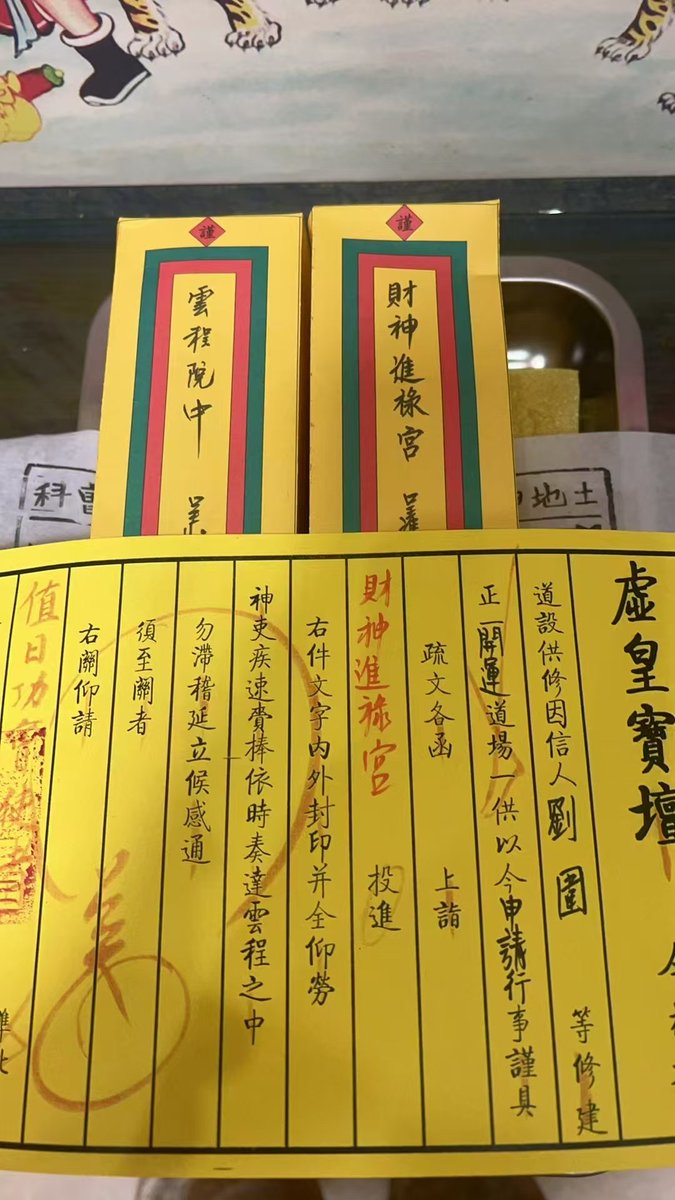 謹
財神進祿宮
謹
雲程院中
土地
科
虛皇寶壇
道設供修因信人劉 圍 等修建
正一開運道場一供以今申請行事謹具
疏文各函 上詣
財神進祿宮 投進
右件文字內外封印并全仰勞
神吏疾速賫捧依時奏達雲程之中
勿滯稽延立候感通
須至關者
右關仰請
值日功